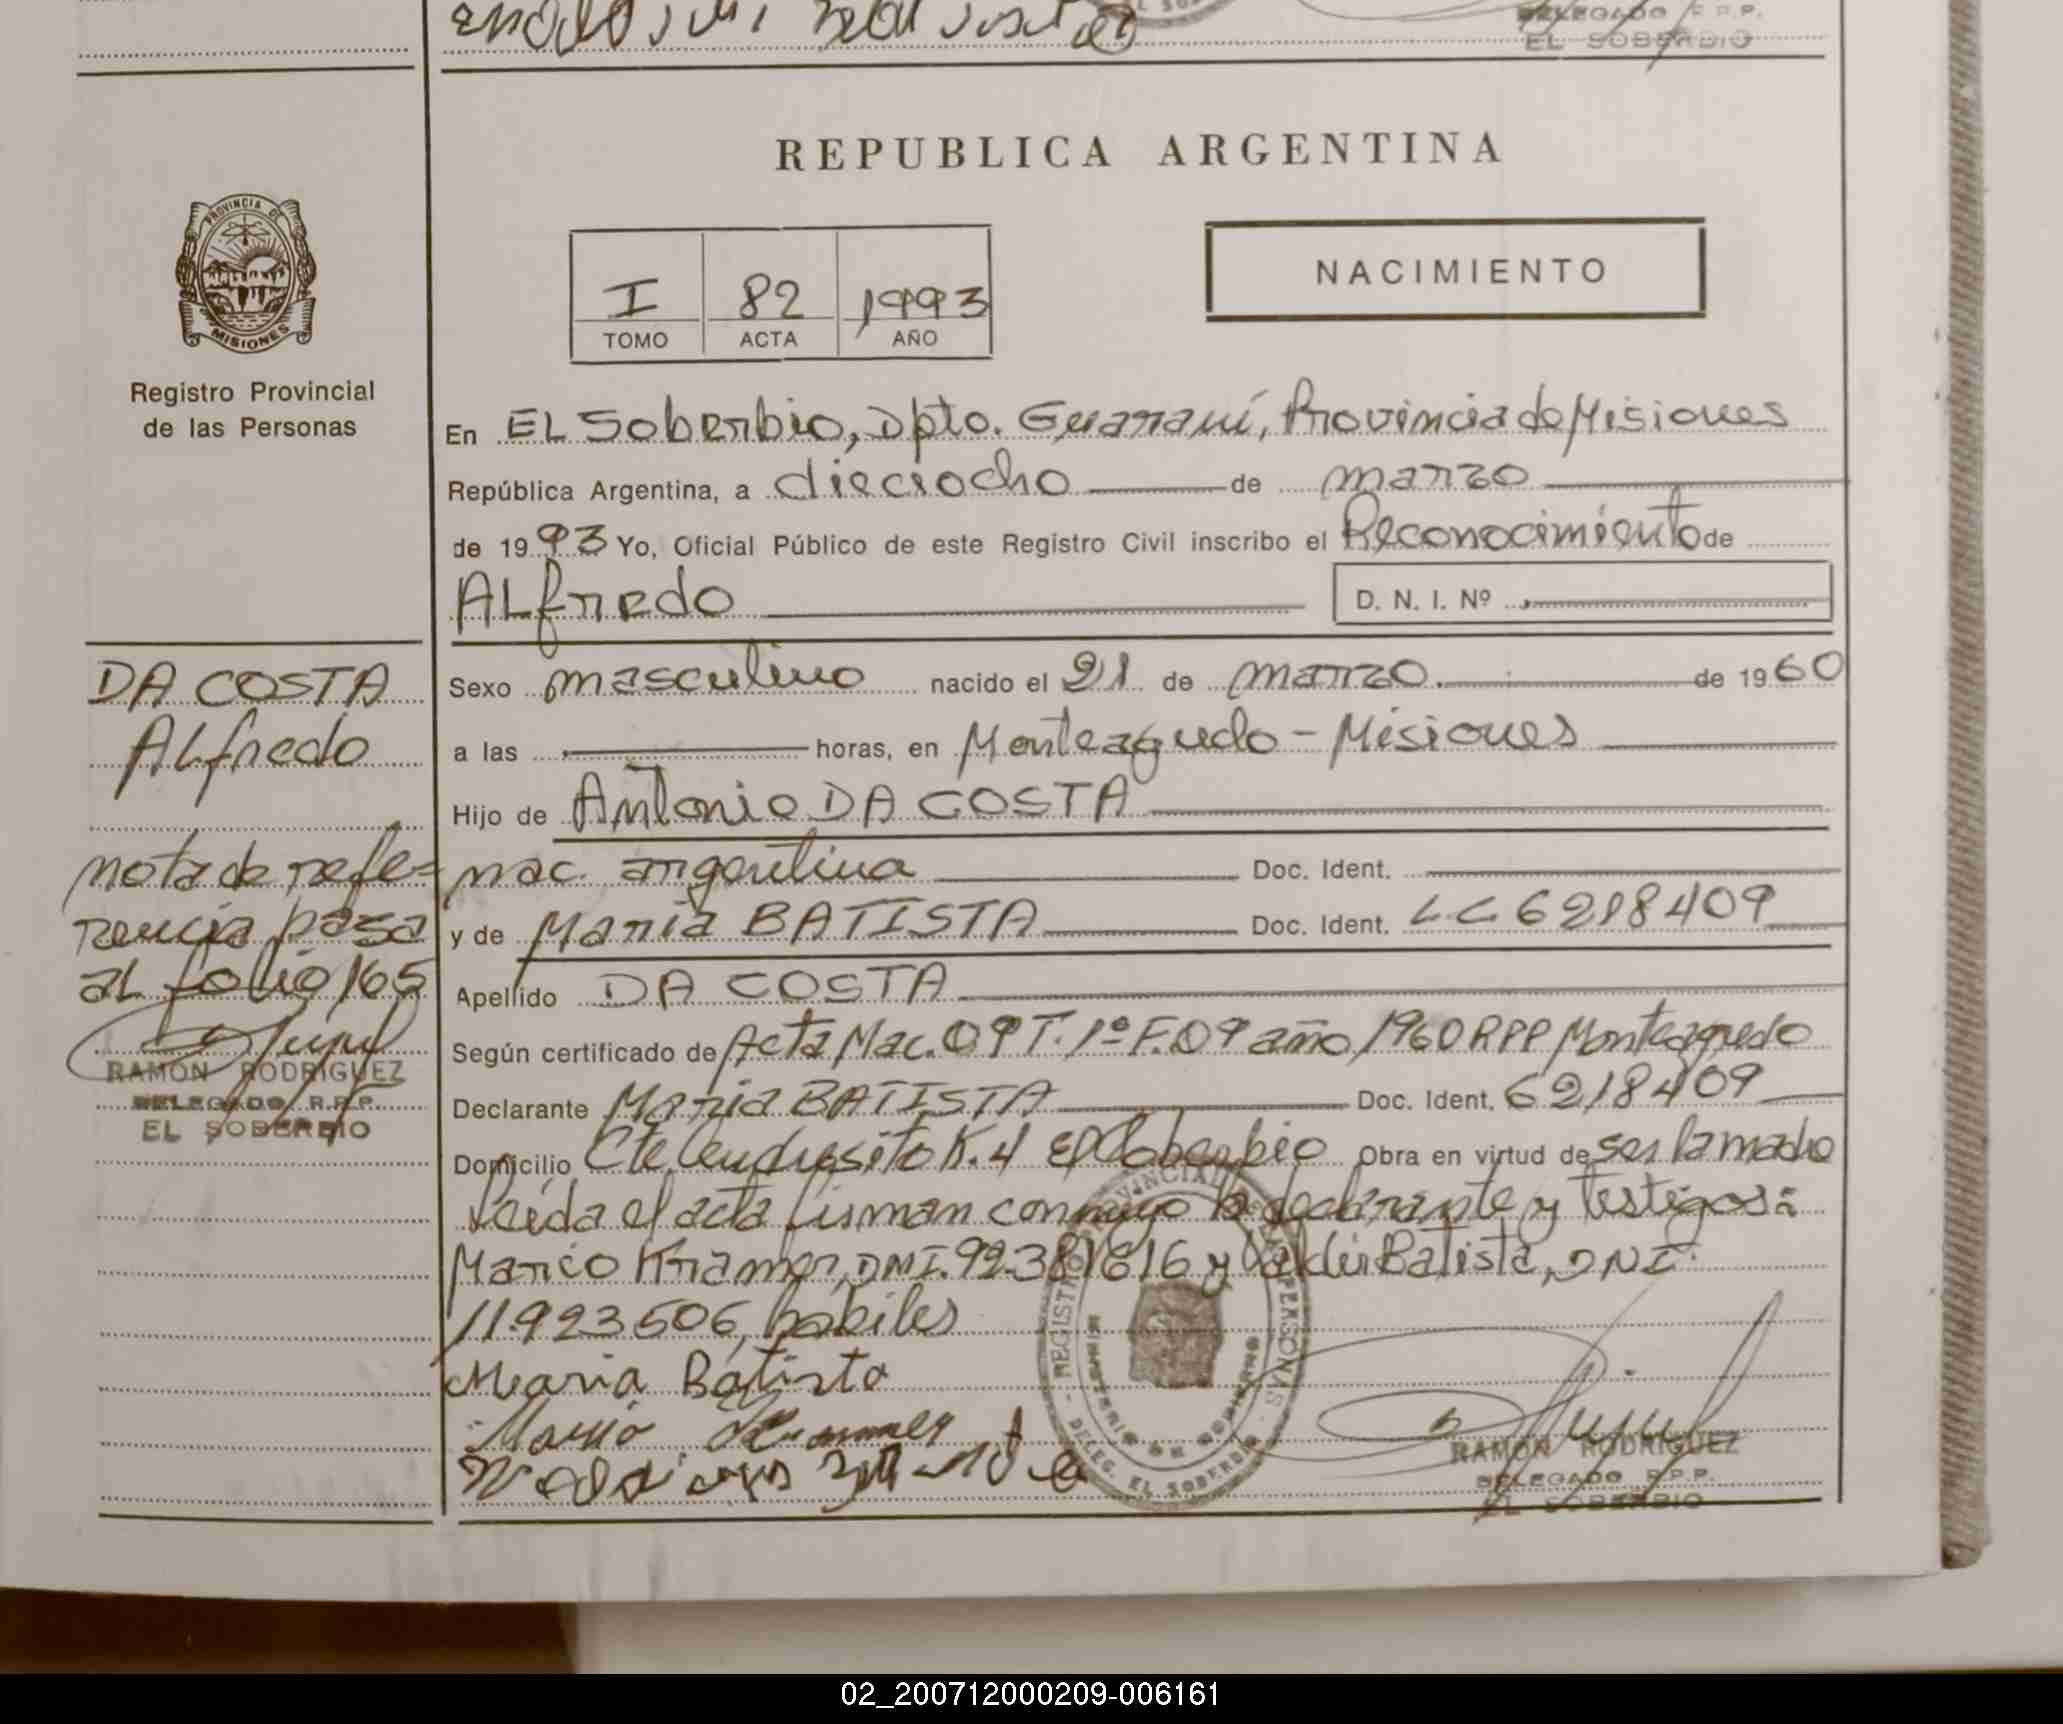 DELEGADO R.P.P.
EL SOBERBIO
REPUBLICA ARGENTINA
PROVINCIA DE
MISIONES
Registro Provincial
de las Personas
I 82 1993
TOMO ACTA AÑO
NACIMIENTO
En EL Soberbio, Dpto. Guaraní, Provincia de Misiones
República Argentina, a dieciocho de marzo
de 1993 Yo, Oficial Público de este Registro Civil inscribo el Reconocimiento de
ALfredo D. N. I. Nº
DA COSTA
ALfredo
nota de refe=
rencia pasa
al folio 165
RAMON RODRIGUEZ
DELEGADO R.P.P.
EL SOBERBIO
Sexo masculino nacido el 21 de marzo. de 1960
a las horas, en Monteagudo - Misiones
Hijo de Antonio DA COSTA
nac. argentina Doc. Ident.
y de Maria BATISTA Doc. Ident. L.C. 6218409
Apellido DA COSTA
Según certificado de Acta Nac. 09 T. 1º F. 09 año 1960 RPP Monteagudo
Declarante Maria BATISTA Doc. Ident. 6218409
Domicilio K.4 El Soberbio Obra en virtud de ser la madre
Leída el acta firman conmigo la declarante y testigos:
Marico Kramer, DNI. 92.381616 y Valdir Batista, DNI.
11.923506, habiles
Maria Batista
REGISTRO PROVINCIAL DE LAS PERSONAS
MINISTERIO DE GOBIERNO
DELEG. EL SOBERBIO
RAMON RODRIGUEZ
DELEGADO R.P.P.
EL SOBERBIO
02_200712000209-006161